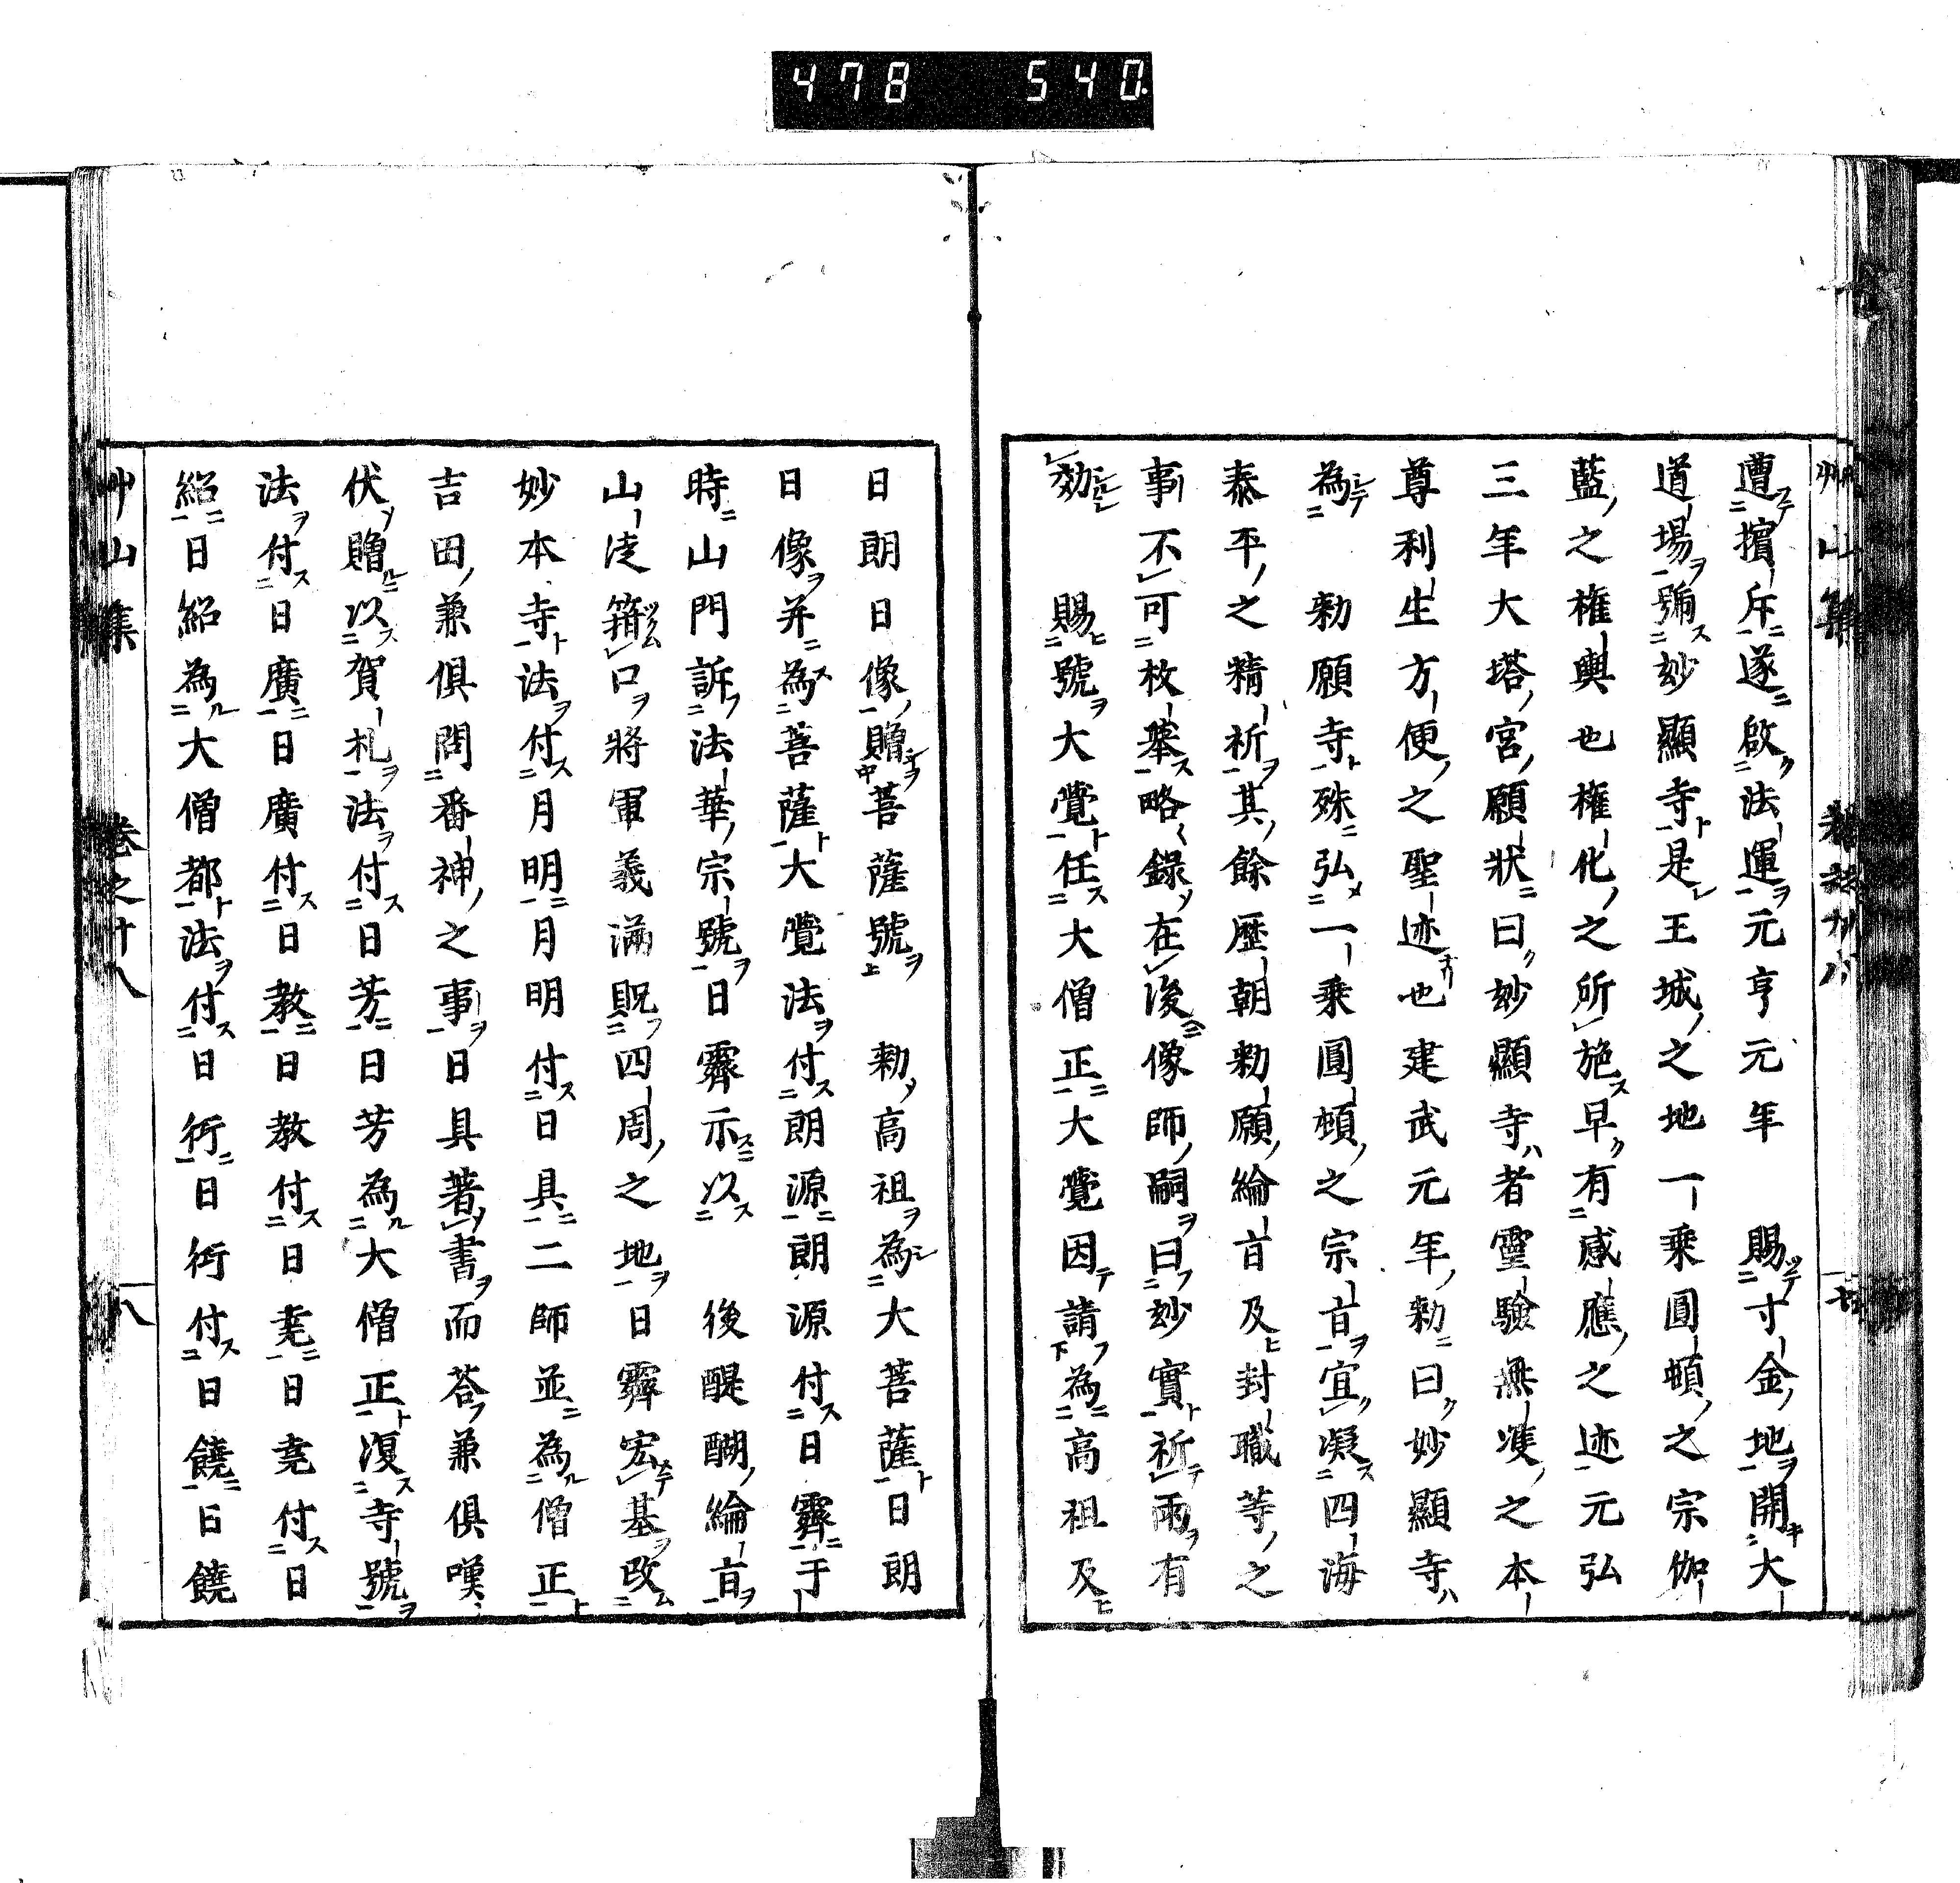 478 540
遭擯斥遂啟法運元亨元年 賜寸金地開大
道場號妙顯寺是王城之地一乘圓頓之宗伽
藍之權輿也權化之所施早有感應之迹元弘
三年大塔宮願狀曰妙顯寺者靈驗無雙之本
尊利生方便之聖迹也建武元年勅曰妙顯寺
為 勅願寺殊弘一乘圓頓之宗旨宜凝四海
泰平之精祈其餘歷朝勅願綸旨及封職等之
事不可枚舉略錄在後像師嗣曰妙實祈雨有
効 賜號大覺任大僧正大覺因請為高祖及
日朗日像贈菩薩號 勅高祖為大菩薩日朗
日像并為菩薩大覺法付朗源朗源付日霽于
時山門訴法華宗號日霽示以 後醍醐綸旨
山徒箝口將軍義滿貺四周之地日霽宏基改
妙本寺法付月明月明付日具二師並為僧正
吉田兼俱問番神之事日具著書而荅兼俱嘆
伏贈以賀札法付日芳日芳為大僧正復寺號
法付日廣日廣付日教日教付日堯日堯付日
紹日紹為大僧都法付日衍日衍付日饒日饒
艸山集 卷之十八 八